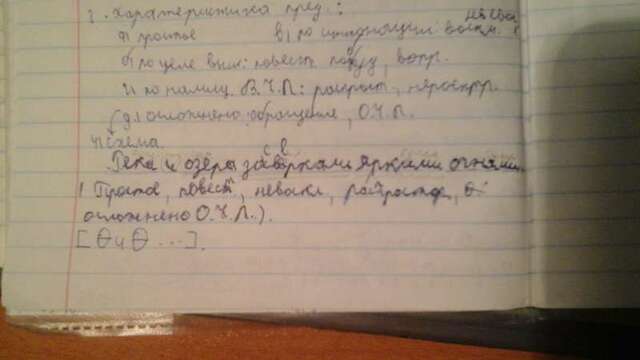 3. Характеристика пред.:
а) простое в) по интонации: воскл.
б) по цели выс: повест, побуд, вопр.
г) по налич. В.Ч.П.: распрост, нераспр.
д) осложнено: обращение, О.Ч.П.
4) Схема.
Река и озера засверкали яркими огнями.
(Простое, повест, невоскл, распростр,
осложнено О.Ч.П.).
[O и O ...].